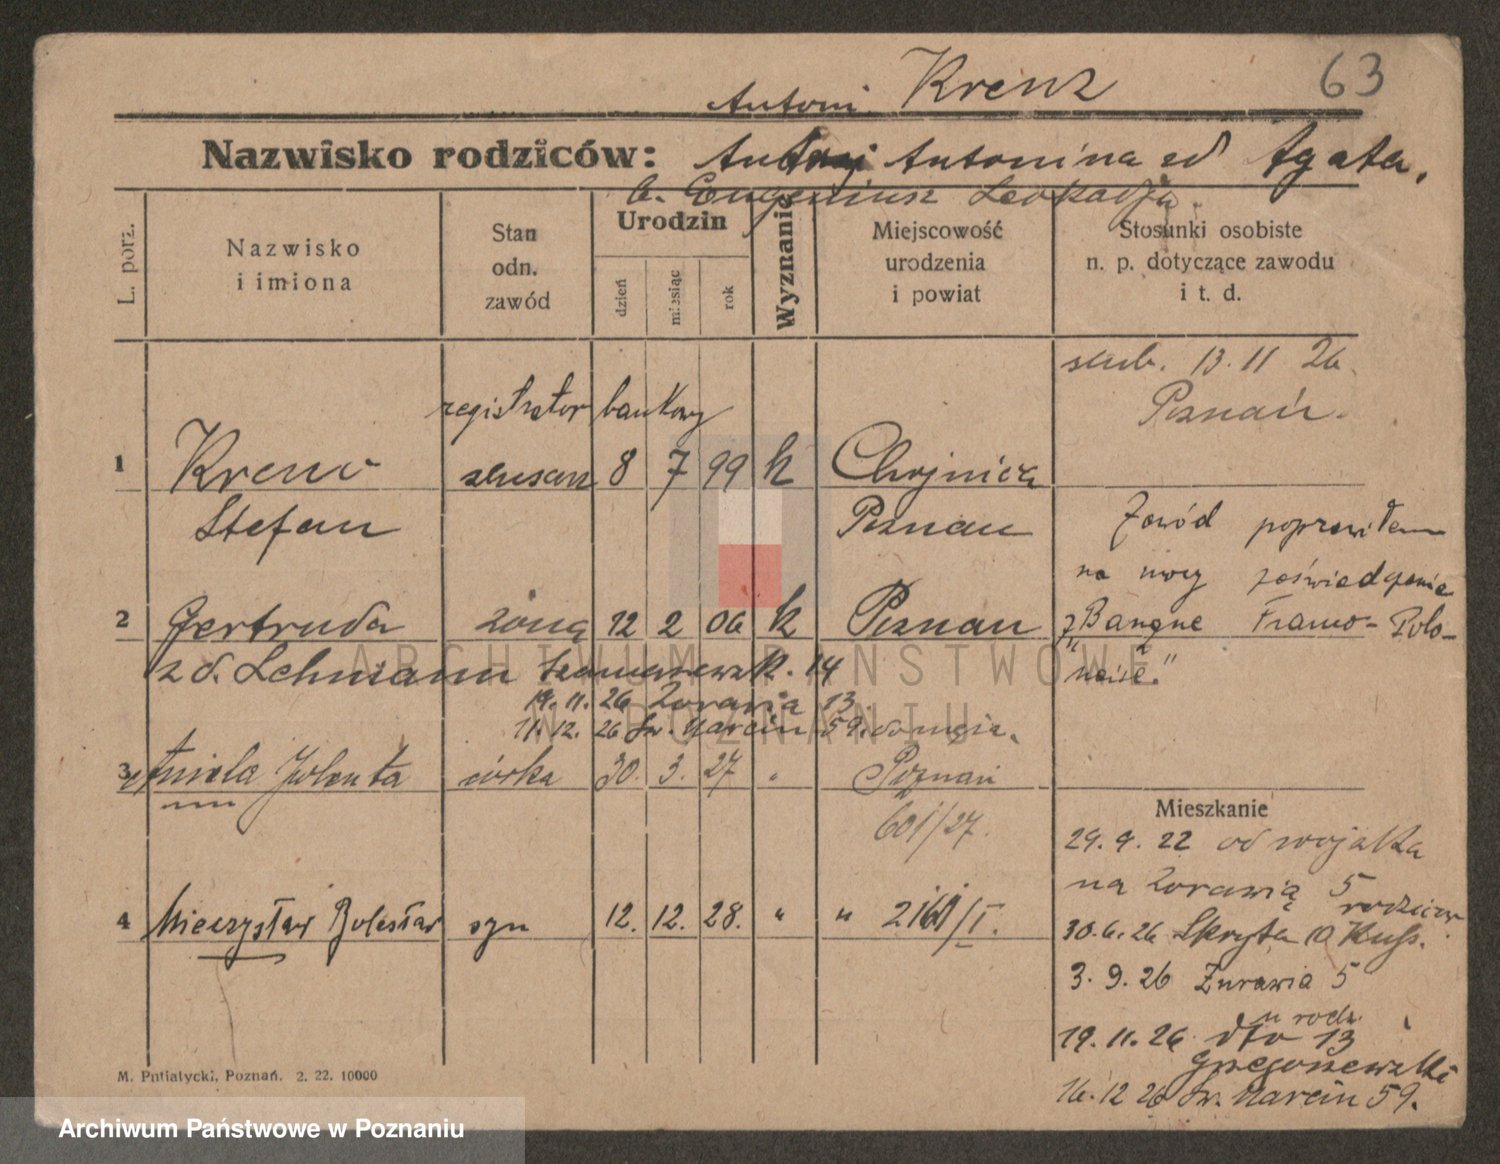 Antoni Krenz 63
Nazwisko rodziców: Antoni Antonina zd Agata.
b. Eugeniusz Leokadja.
L. porz.
Nazwisko i imiona
Stan odn. zawód
Urodzin
dzień
miesiąc
rok
Wyznanie
Miejscowość urodzenia i powiat
Stosunki osobiste n. p. dotyczące zawodu i t. d.
13. 11 26.
Poznań.
registrator bankowy
1 Krenc ślusarz 8 7 99 k Chojnica
Stefan Poznań
Zawód poprawiłem
na mocy poświadczenia
z "Banque Franco-Polo-
naise."
2 Gertruda żona 12 2 06 k Poznań
z d. Lehmann 14
19. 11. 26 Żurawia 13.
11. 12. 26 Św. Marcin 59. do męża.
3 Aniela Jolenta córka 30. 3. 27 " Poznań
601/27.
4 Mieczysław Bolesław syn 12. 12. 28. " " 2161/I.
Mieszkanie
29. 9. 22 od wojska
na Żorawią 5
rodziców
30. 6. 26 Skryta 10
3. 9. 26 Żurawia 5
u rodz.
19. 11. 26. dto 13
Grzegorzewski
16. 12 26 Św. Marcin 59.
M. Putiatycki, Poznań. 2. 22. 10000
ARCHIWUM PAŃSTWOWE
W POZNANIU
Archiwum Państwowe w Poznaniu